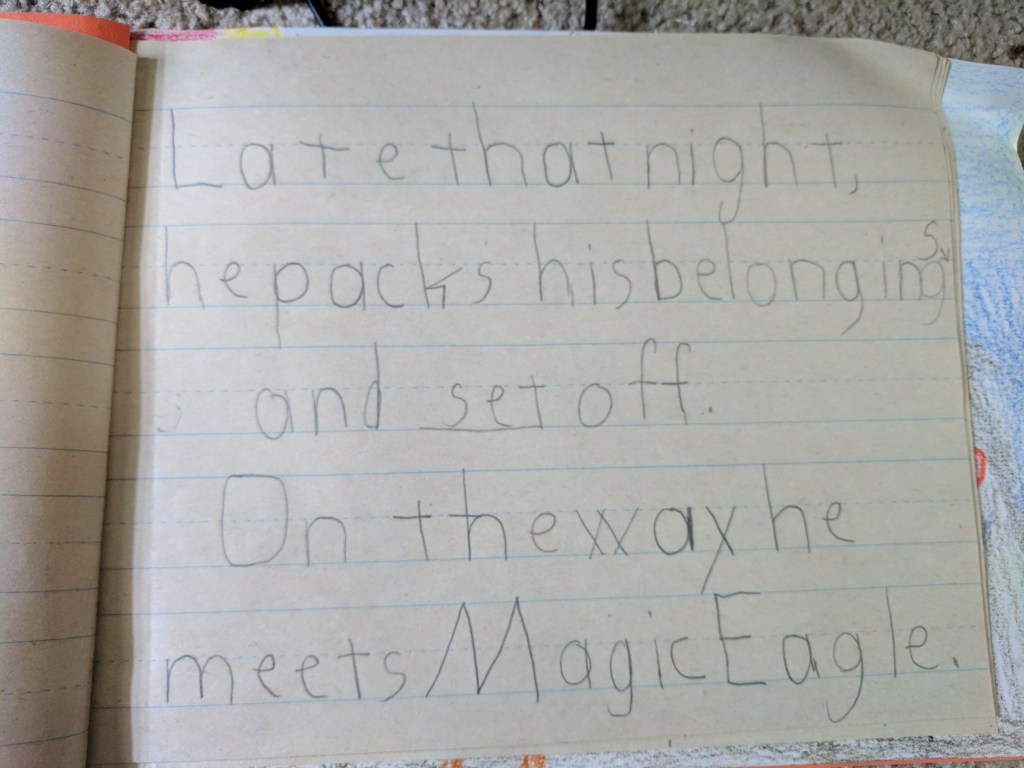 Late that night,
he packs his belongings
and set off.
On the way he
meets Magic Eagle.